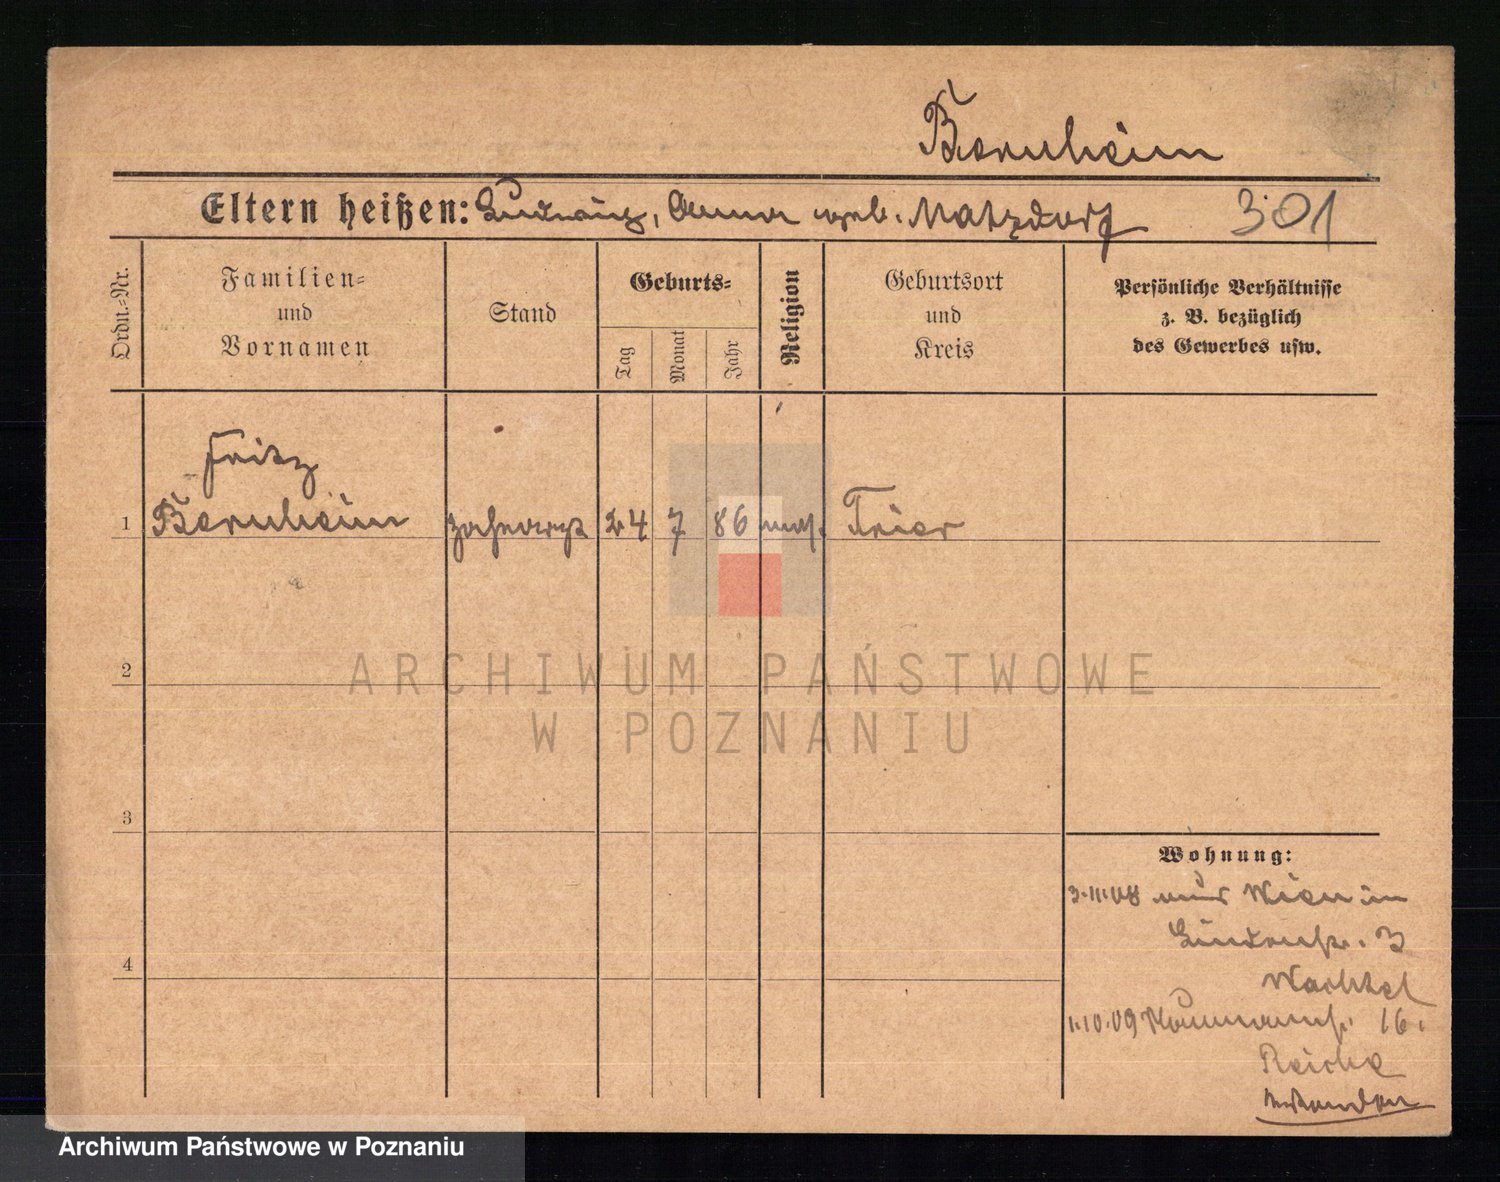 Bernheim
Eltern heißen: Ludwig, Anna geb. Matzdorf 301
Ordn.=Nr.
Familien=
und
Vornamen
Stand
Geburts=
Tag
Monat
Jahr
Religion
Geburtsort
und
Kreis
Persönliche Verhältnisse
z. B. bezüglich
des Gewerbes usw.
Fritz
1 Bernheim Zahnarzt 24 7 86 mos. Trier
2
3
4
Wohnung:
3.11.08 aus Wien in
Lindenstr. 3
Wachtel
1.10.09 16.
Reiche
ARCHIWUM PAŃSTWOWE
W POZNANIU
Archiwum Państwowe w Poznaniu